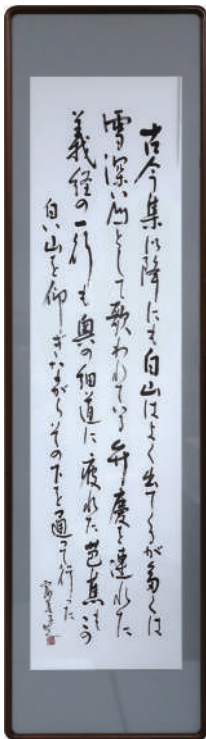 古今集以降にも白山はよく出てくるが多くは
雪深い山として歌われている弁慶を連れた
義経の一行も奥の細道に疲れた芭蕉もこの
白い山を仰ぎながらその下を通って行った